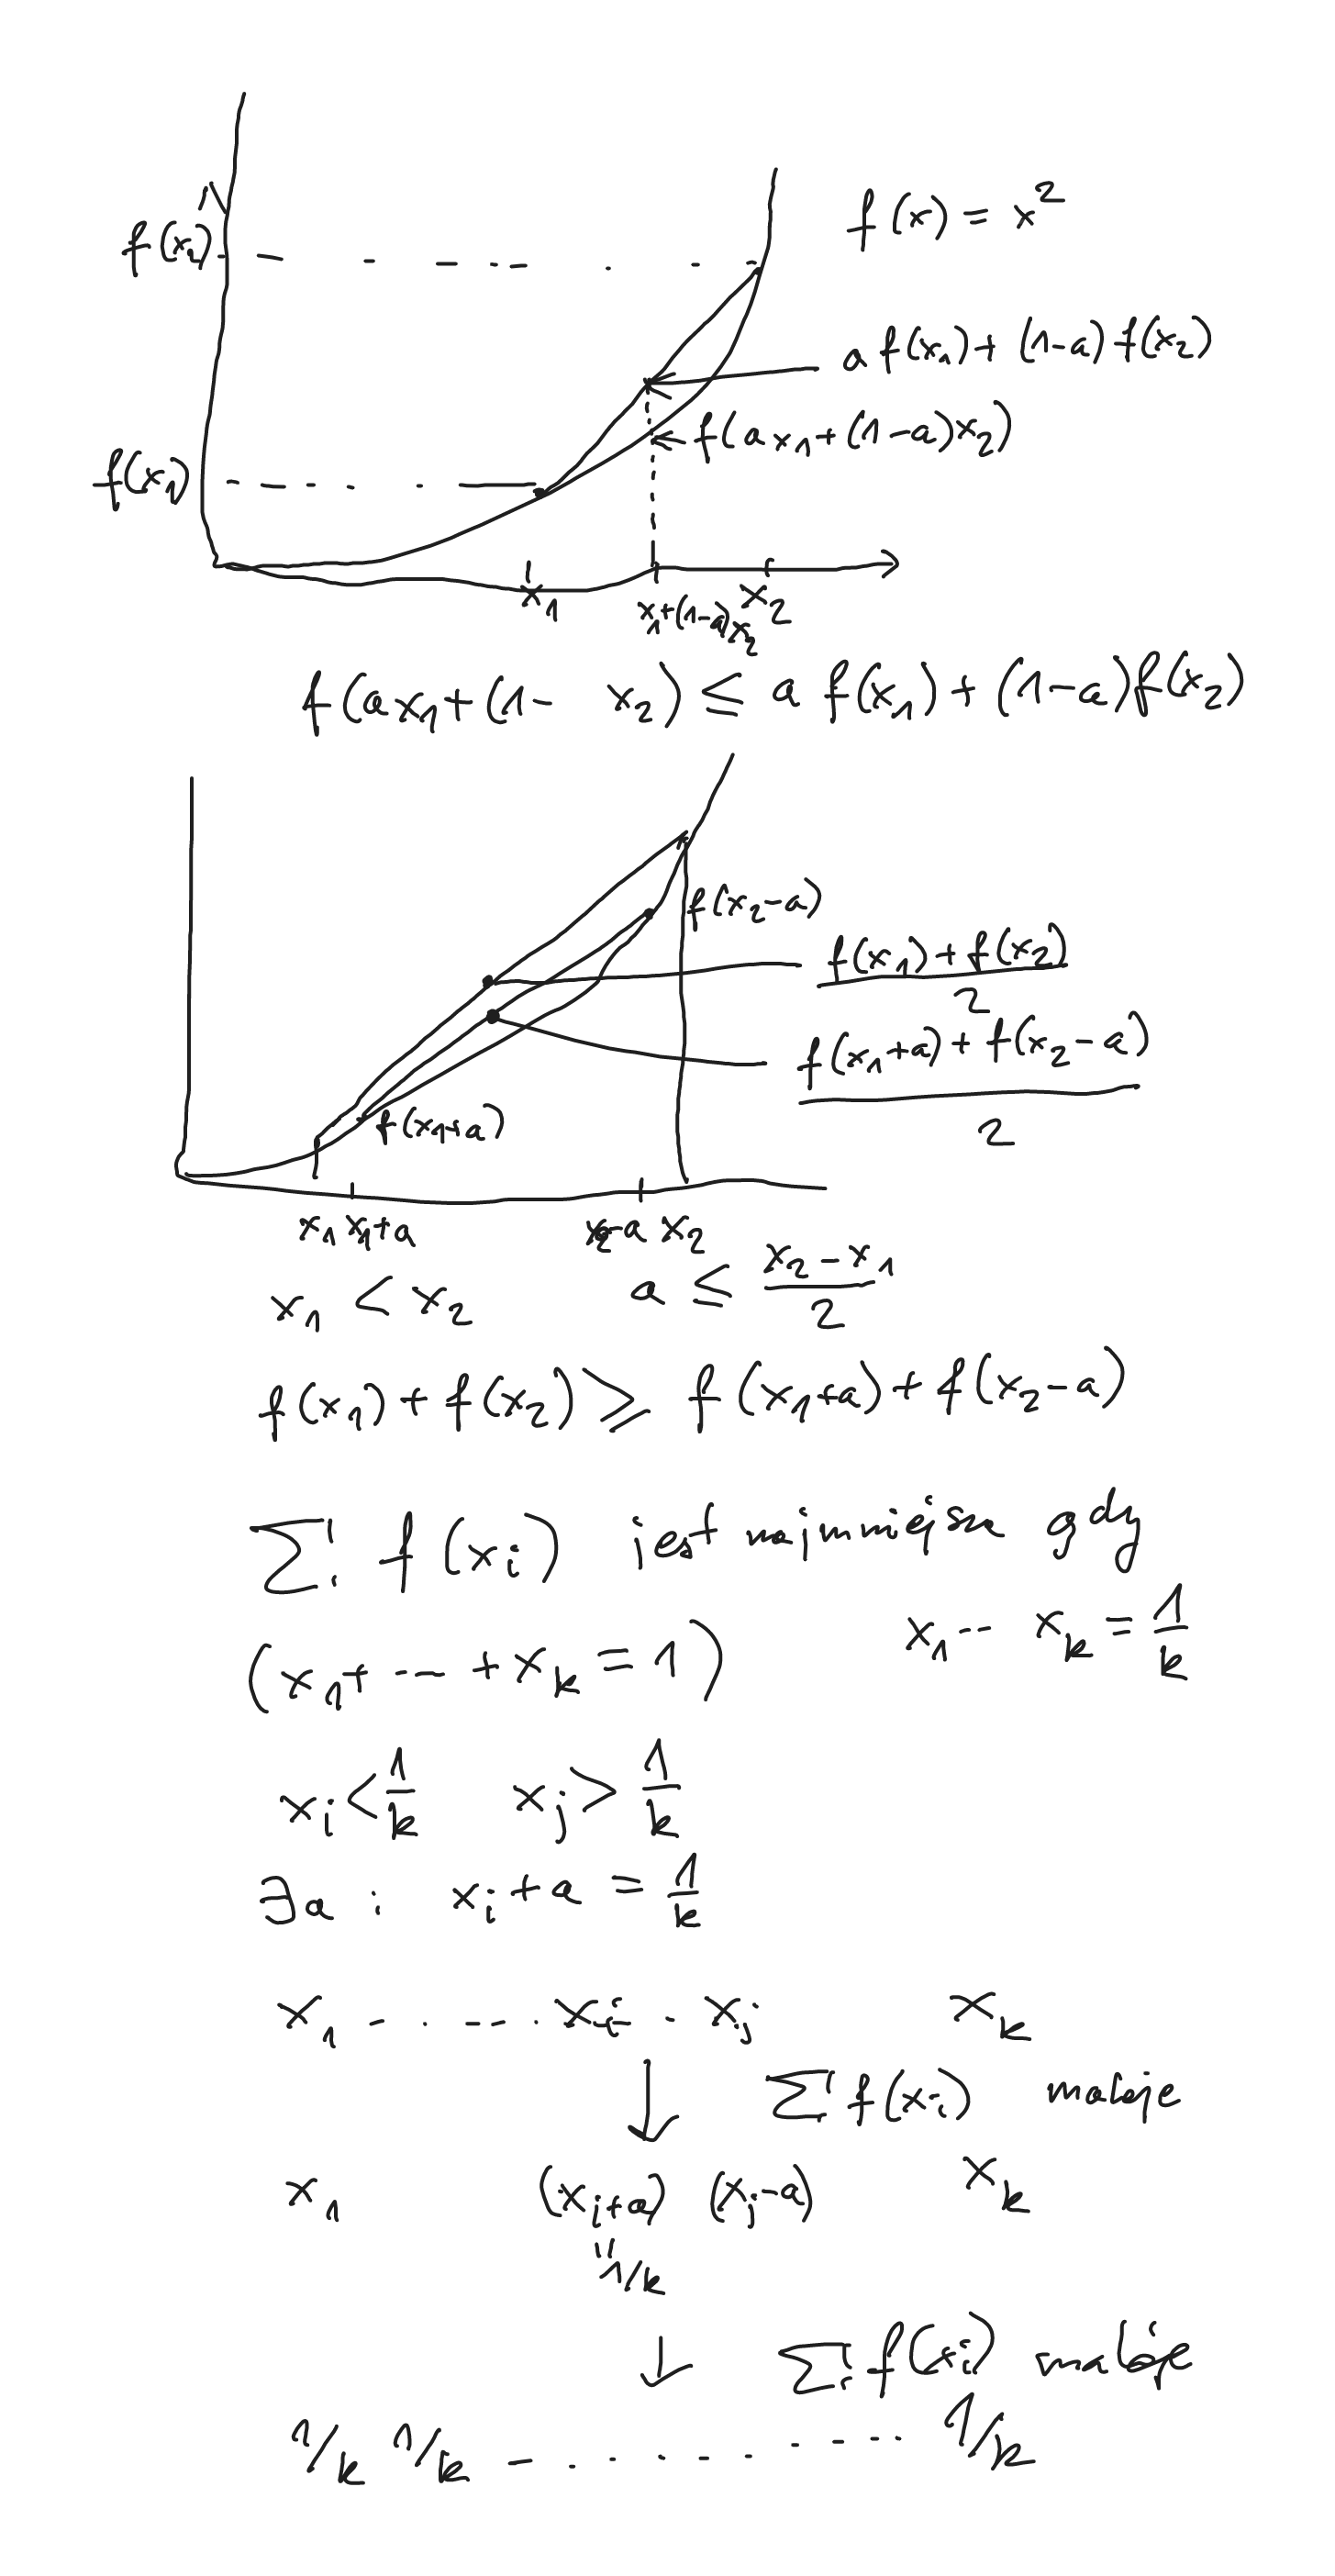 f(x) = x²
f(x₂)
a f(x₁) + (1-a) f(x₂)
f(ax₁ + (1-a)x₂)
f(x₁)
x₁
x₁+(1-a)x₂
x₂
f(ax₁ + (1- x₂) ≤ a f(x₁) + (1-a)f(x₂)
f(x₂-a)
(f(x₁) + f(x₂))/2
(f(x₁+a) + f(x₂-a))/2
f(x₁+a)
x₁ x₁+a x₂-a x₂
x₁ < x₂ a ≤ (x₂-x₁)/2
f(x₁) + f(x₂) ≥ f(x₁+a) + f(x₂-a)
∑ᵢ f(xᵢ) jest najmniejsza gdy
(x₁+ --- + xₖ = 1) x₁ -- xₖ = 1/k
xᵢ < 1/k xⱼ > 1/k
∃a : xᵢ + a = 1/k
x₁ ..... xᵢ . xⱼ xₖ
↓ ∑ᵢ f(xᵢ) maleje
x₁ (xᵢ+a) (xⱼ-a) xₖ
" 1/k
↓ ∑ᵢ f(xᵢ) maleje
1/k 1/k - ........ 1/k